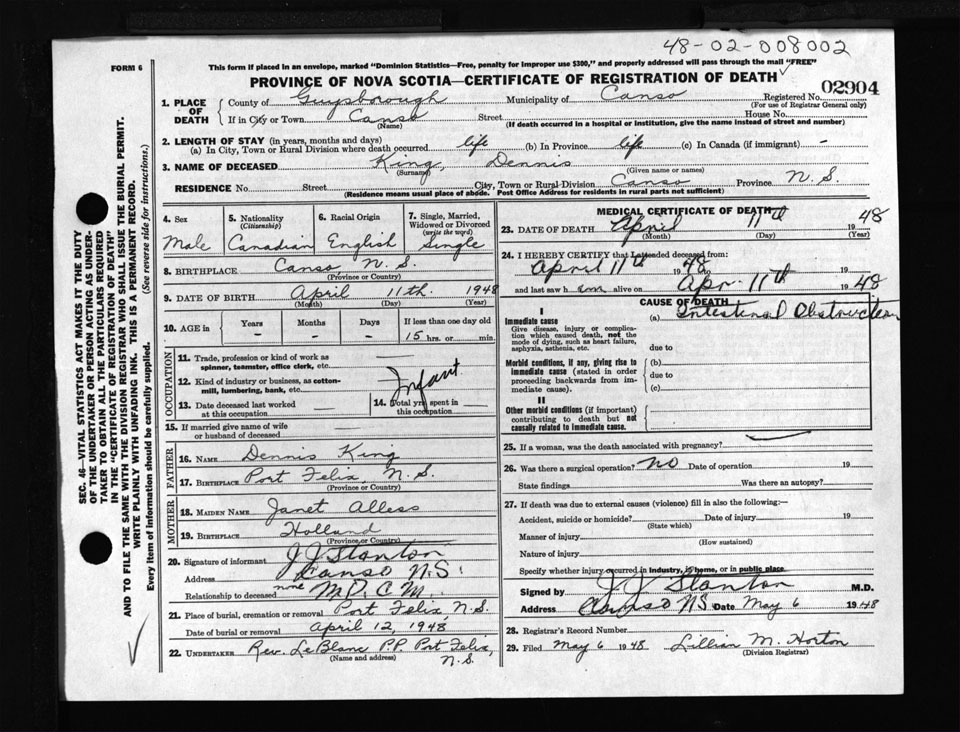 48-02-008002
FORM 6
This form if placed in an envelope, marked "Dominion Statistics—Free, penalty for improper use $300," and properly addressed will pass through the mail "FREE"
PROVINCE OF NOVA SCOTIA—CERTIFICATE OF REGISTRATION OF DEATH
02904
1. PLACE OF DEATH
County of Guysborough Municipality of Canso Registered No.
(For use of Registrar General only)
If in City or Town Canso Street House No.
(Name) (If death occurred in a hospital or institution, give the name instead of street and number)
2. LENGTH OF STAY (in years, months and days)
(a) In City, Town or Rural Division where death occurred life (b) In Province life (c) In Canada (if immigrant) —
3. NAME OF DECEASED King, Dennis
(Surname) (Given name or names)
RESIDENCE No. Street City, Town or Rural Division Canso Province N.S.
(Residence means usual place of abode. Post Office Address for residents in rural parts not sufficient)
4. Sex Male
5. Nationality (Citizenship) Canadian
6. Racial Origin English
7. Single, Married, Widowed or Divorced (write the word) Single
8. BIRTHPLACE Canso, N.S.
(Province or Country)
9. DATE OF BIRTH April 11th. 1948
(Month) (Day) (Year)
10. AGE in Years Months Days If less than one day old
— — — 15 hrs. or min.
OCCUPATION
11. Trade, profession or kind of work as spinner, teamster, office clerk, etc.
12. Kind of industry or business, as cotton-mill, lumbering, bank, etc.
Infant
13. Date deceased last worked at this occupation
14. Total yrs spent in this occupation
15. If married give name of wife or husband of deceased
FATHER
16. NAME Dennis King
17. BIRTHPLACE Port Felix, N.S.
(Province or Country)
MOTHER
18. MAIDEN NAME Janet Alless
19. BIRTHPLACE Holland
(Province or Country)
20. Signature of informant J J Stanton
Address Canso N.S.
Relationship to deceased none M.D. C.M.
21. Place of burial, cremation or removal Port Felix, N.S.
Date of burial or removal April 12, 1948
22. UNDERTAKER Rev. LeBlanc P.P. Port Felix, N.S.
(Name and address)
MEDICAL CERTIFICATE OF DEATH
23. DATE OF DEATH April 11th 1948
(Month) (Day) (Year)
24. I HEREBY CERTIFY that I attended deceased from:
April 11th 1948 to 19
and last saw him alive on Apr. 11th 1948
CAUSE OF DEATH
I
Immediate cause (a) Intestinal Obstruction
Give disease, injury or complication which caused death, not the mode of dying, such as heart failure, asphyxia, asthenia, etc.
due to
Morbid conditions, if any, giving rise to immediate cause (stated in order proceeding backwards from immediate cause).
(b)
due to
(c)
II
Other morbid conditions (if important) contributing to death but not causally related to immediate cause.
25. If a woman, was the death associated with pregnancy?
26. Was there a surgical operation? NO Date of operation 19
State findings Was there an autopsy?
27. If death was due to external causes (violence) fill in also the following:—
Accident, suicide or homicide? Date of injury 19
(State which)
Manner of injury
(How sustained)
Nature of injury
Specify whether injury occurred in industry, in home, or in public place
Signed by J. J Stanton M.D.
Address Canso NS Date May 6 1948
28. Registrar's Record Number
29. Filed May 6 1948 Lillian M. Horton
(Division Registrar)
SEC. 46—VITAL STATISTICS ACT MAKES IT THE DUTY
OF THE UNDERTAKER OR PERSON ACTING AS UNDER-
TAKER TO OBTAIN ALL THE PARTICULARS REQUIRED
IN THE "CERTIFICATE OF REGISTRATION OF DEATH"
AND TO FILE THE SAME WITH THE DIVISION REGISTRAR WHO SHALL ISSUE THE BURIAL PERMIT.
WRITE PLAINLY WITH UNFADING INK. THIS IS A PERMANENT RECORD.
Every item of information should be carefully supplied. (See reverse side for instructions.)